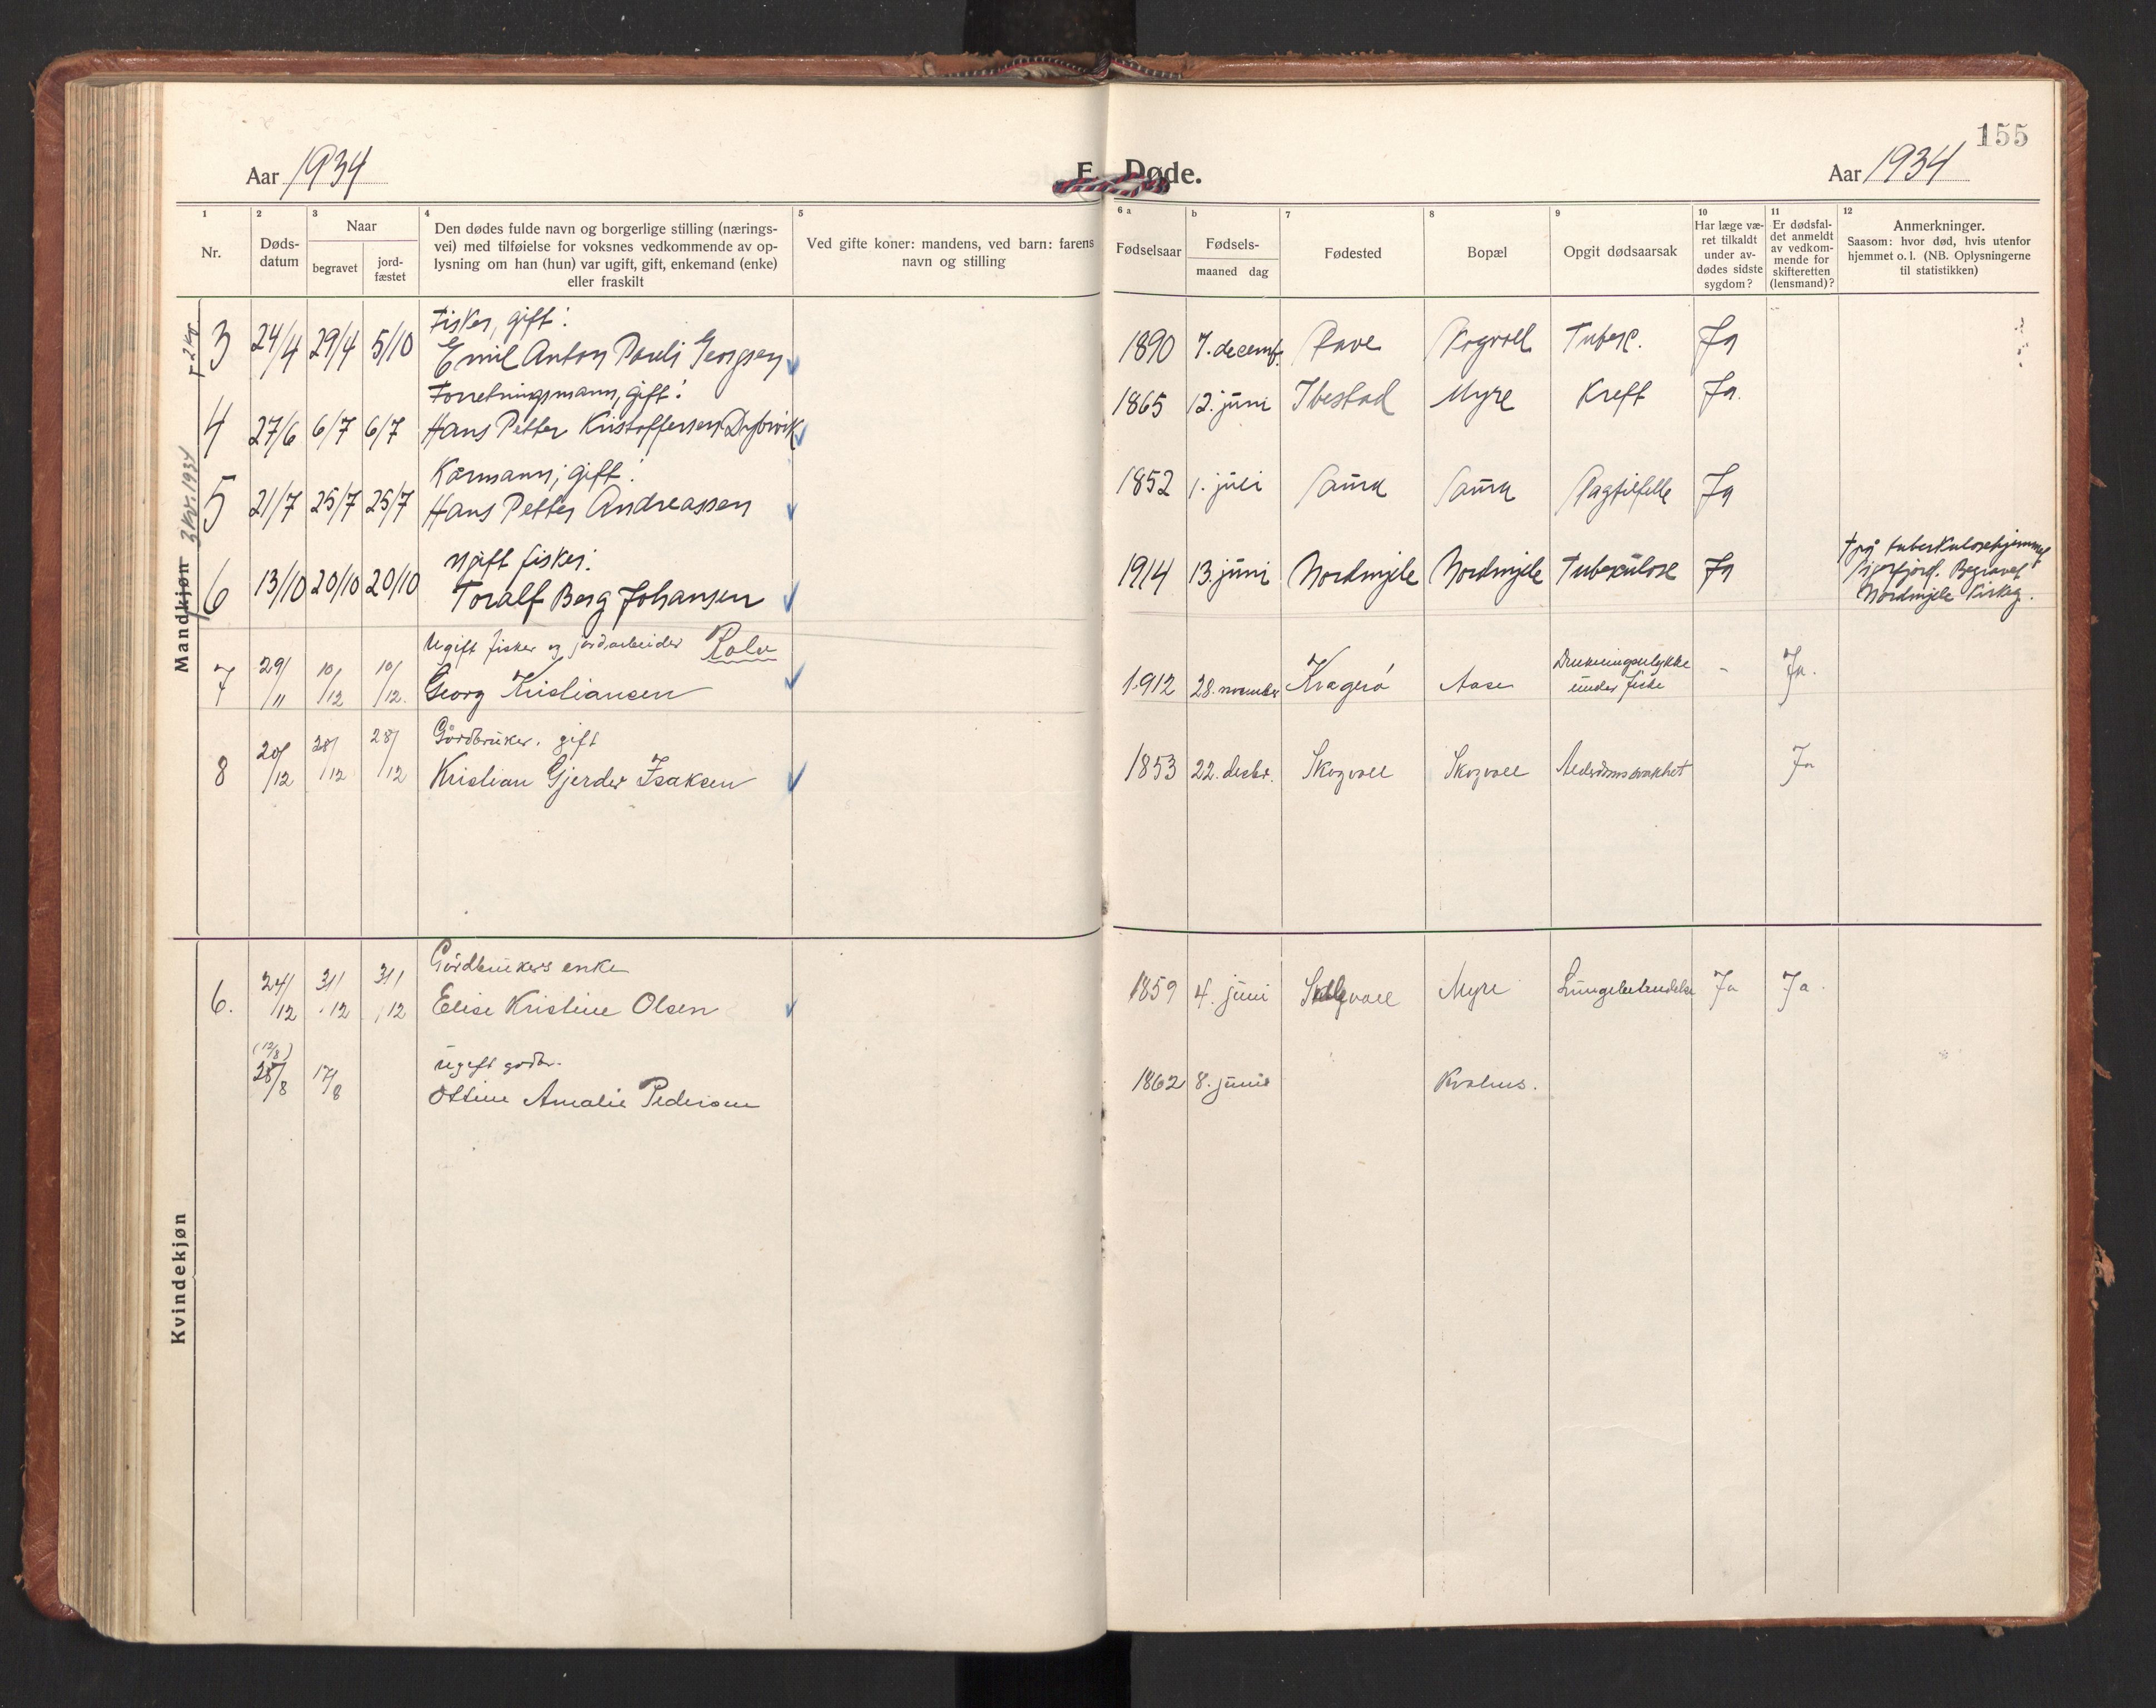 155
Aar 1934
E. Døde.
Aar 1934
1
2
3
4
5
6 a
b
7
8
9
10
11
12
Nr.
Døds-
datum
Naar
begravet
jord-
fæstet
Den dødes fulde navn og borgerlige stilling (nærings-
vei) med tilføielse for voksnes vedkommende av op-
lysning om han (hun) var ugift, gift, enkemand (enke)
eller fraskilt
Ved gifte koner: mandens, ved barn: farens
navn og stilling
Fødselsaar
Fødsels-
maaned dag
Fødested
Bopæl
Opgit dødsaarsak
Har læge væ-
ret tilkaldt
under av-
dødes sidste
sygdom?
Er dødsfal-
det anmeldt
av vedkom-
mende for
skifteretten
(lensmand)?
Anmerkninger.
Saasom: hvor død, hvis utenfor
hjemmet o. l. (NB. Oplysningerne
til statistikken)
Mandkjøn
3 kv. 1934
Fisker, gift:
3 24/4 29/4 5/10 Emil Anton Pauli Georgsen 1890 7. decemb. Tuberk. Ja
Forretningsmann, gift:
4 27/6 6/7 6/7 Hans Petter Kristoffersen Dybvik 1865 12. juni Ibestad Myre Kreft Ja.
Kårmann, gift:
5 21/7 25/7 25/7 Hans Petter Andreassen 1852 1. juli Saura Saura Slagtilfelle Ja
Ugift fisker:
6 13/10 20/10 20/10 Toralf Berg Johansen 1914 13. juni Nordmjele Nordmjele Tuberkulose Ja
† på tuberkulosehjemmet
Sigerfjord. Begravet
Nordmjele kirkeg.
Ugift fisker og jordarbeider Rolv
7 29/11 10/12 10/12. Georg Kristiansen 1912 28. november Kragerø Aase Drukningsulykke
under fiske - Ja.
Gårdbruker. gift
8 20/12 28/12 28/12 Kristian Gjerder Isaksen 1853 22. desbr. Skogvoll Skogvoll Alderdomssvakhet Ja
Kvindekjøn
Gårdbrukers enke
6. 24/12 31/12 31/12 Elise Kristine Olsen 1859 4. juni Skogvoll Myre Lungebetendelse Ja Ja.
(12/8)
Ugift gårdbr.
28/8 17/8 Ottine Amalie Pedersen 1862 8. juni Kvalnes.